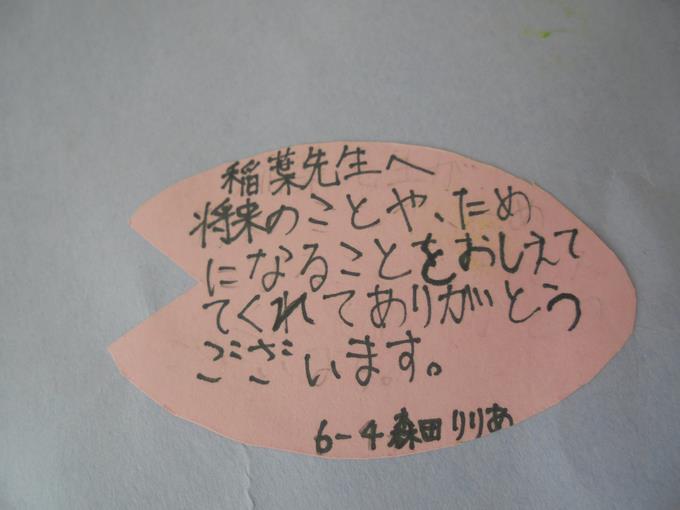 稲葉先生へ
将来のことや、ため
になることをおしえて
てくれてありがとう
ございます。
6-4 森田りりあ